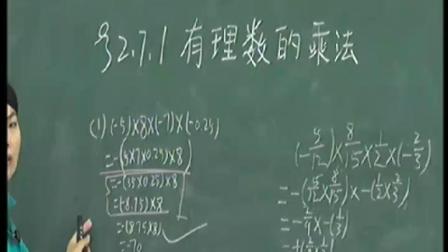 §2.7.1 有理数的乘法
(1) (-5)×8×(-7)×(-0.25)
=-(5×7×0.25)×8
=-(35×0.25)×8
=(-8.75)×8
=-(8.75×8)
=-70
(-5/12)×8/15×1/2×(-2/3)
=-(5/12×8/15)×-(1/2×2/3)
=-2/9×(-1/3)